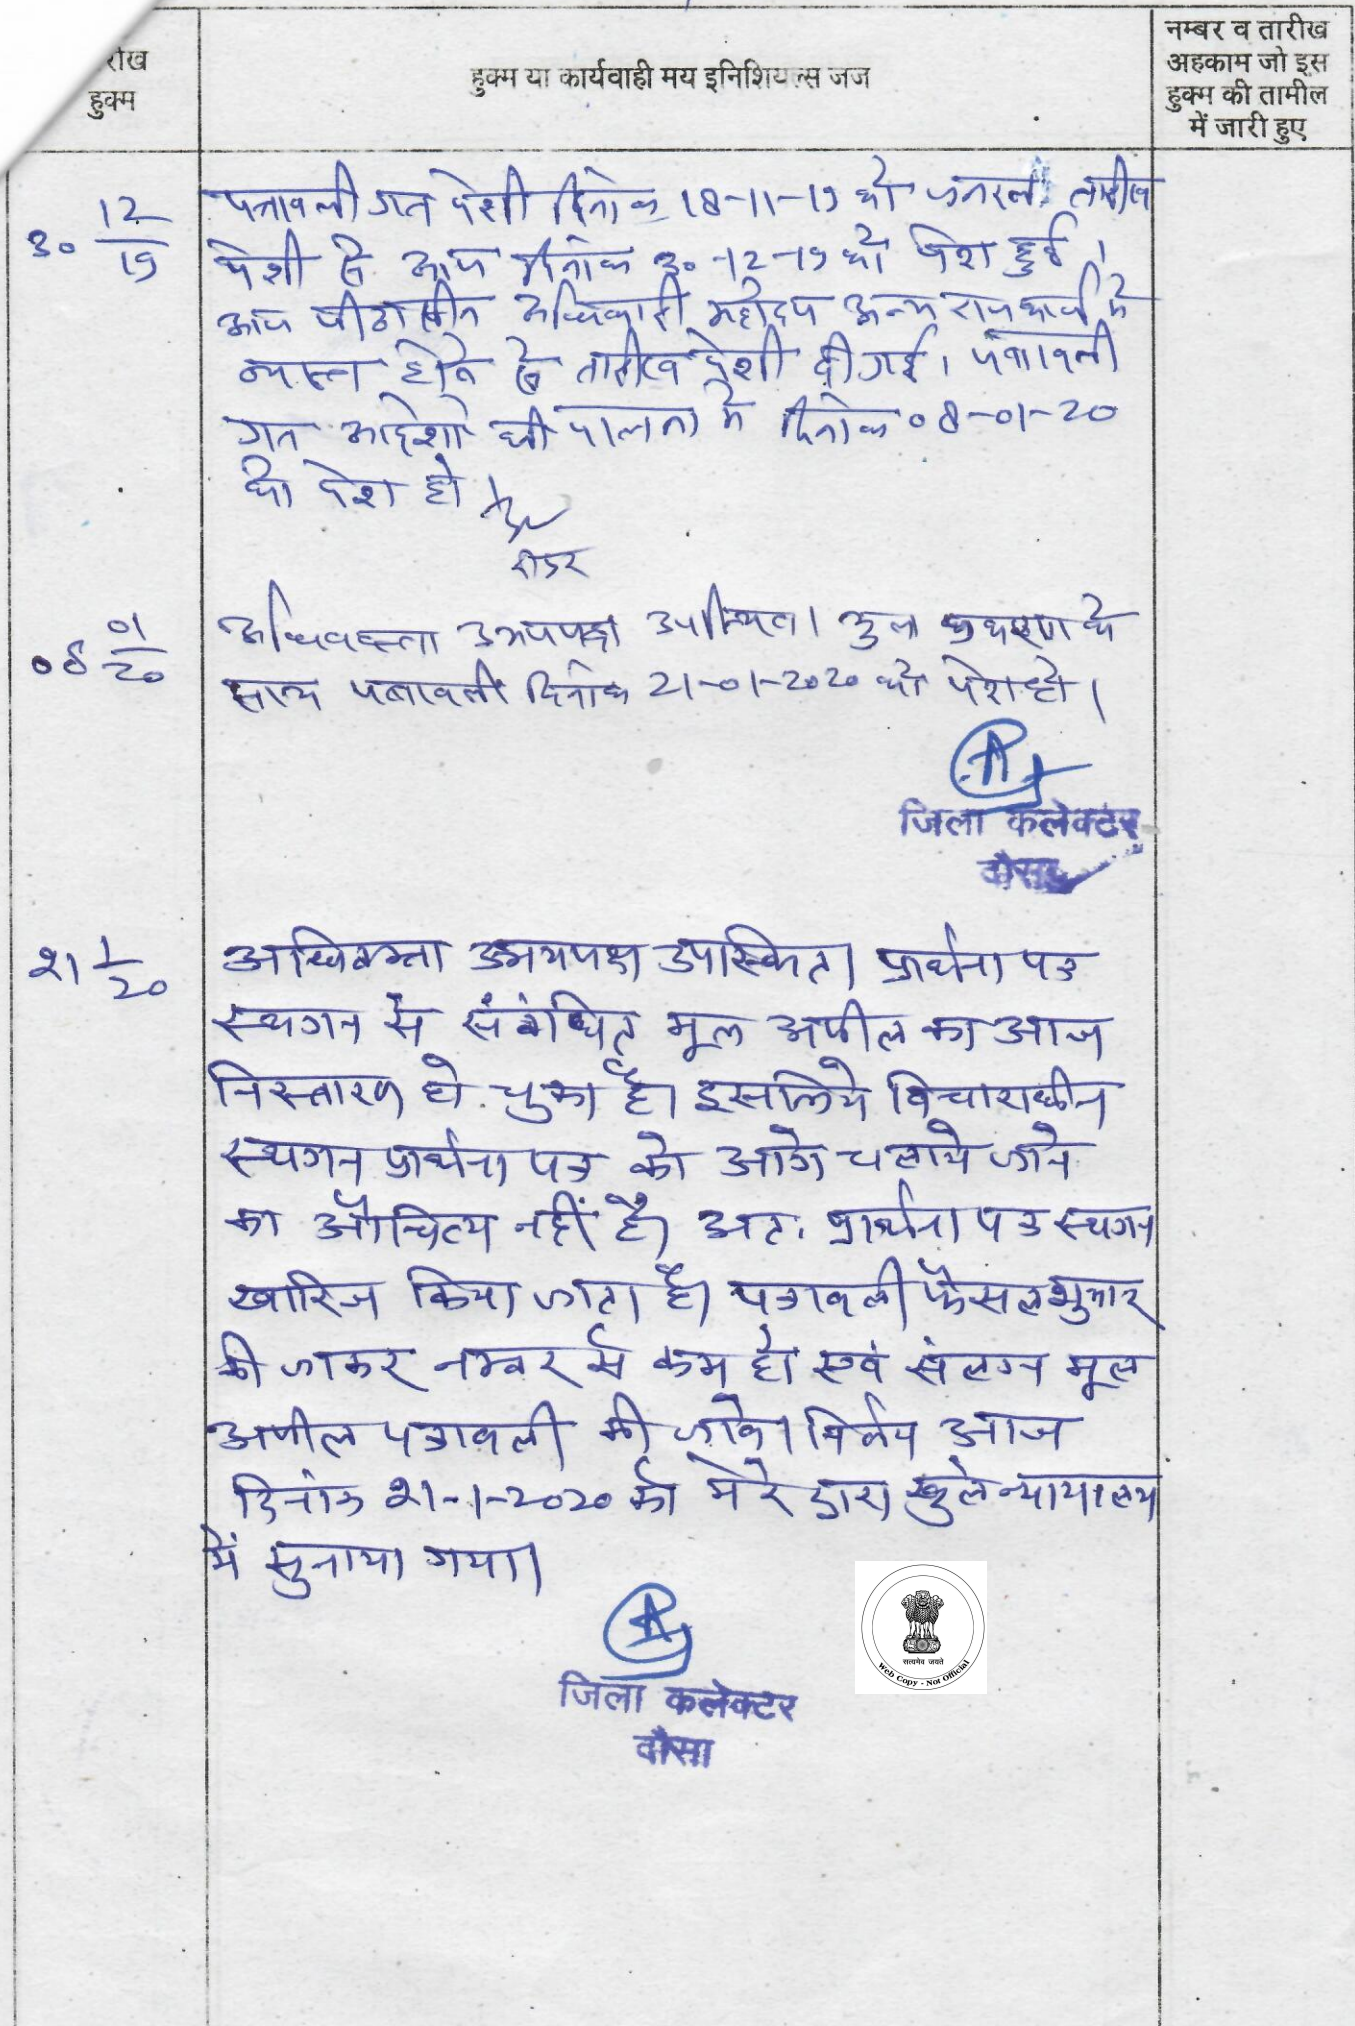 रीख
हुक्म
हुक्म या कार्यवाही मय इनिशियल्स जज
नम्बर व तारीख
अहकाम जो इस
हुक्म की तामील
में जारी हुए
30 12/19
पत्रावली गत पेशी दिनांक 18-11-19 को जनरल तारीख
पेशी से आज दिनांक 30-12-19 को पेश हुई।
आज पीठासीन अधिकारी महोदय अन्य राजकार्य में
व्यस्त होने से तारीख पेशी दी गई। पत्रावली
गत आदेशो की पालना में दिनांक 08-01-20
को पेश हो
रीडर
08 01/20
अधिवक्ता उभयपक्ष उपस्थित। मूल प्रकरण के
साथ पत्रावली दिनांक 21-01-2020 को पेश हो।
जिला कलेक्टर
दौसा
21 1/20
अधिवक्ता उभयपक्ष उपस्थित। प्रार्थना पत्र
स्थगन से संबंधित मूल अपील का आज
निस्तारण हो चुका है। इसलिये विचाराधीन
स्थगन प्रार्थना पत्र को आगे चलाये जाने
का औचित्य नहीं है। अतः प्रार्थना पत्र स्थगन
खारिज किया जाता है। पत्रावली फैसलशुमार
की जाकर नम्बर से कम हो एवं संलग्न मूल
अपील पत्रावली की जावे। निर्णय आज
दिनांक 21-1-2020 को मेरे द्वारा खुले न्यायालय
में सुनाया गया।
सत्यमेव जयते
Web Copy - Not Official
जिला कलेक्टर
दौसा